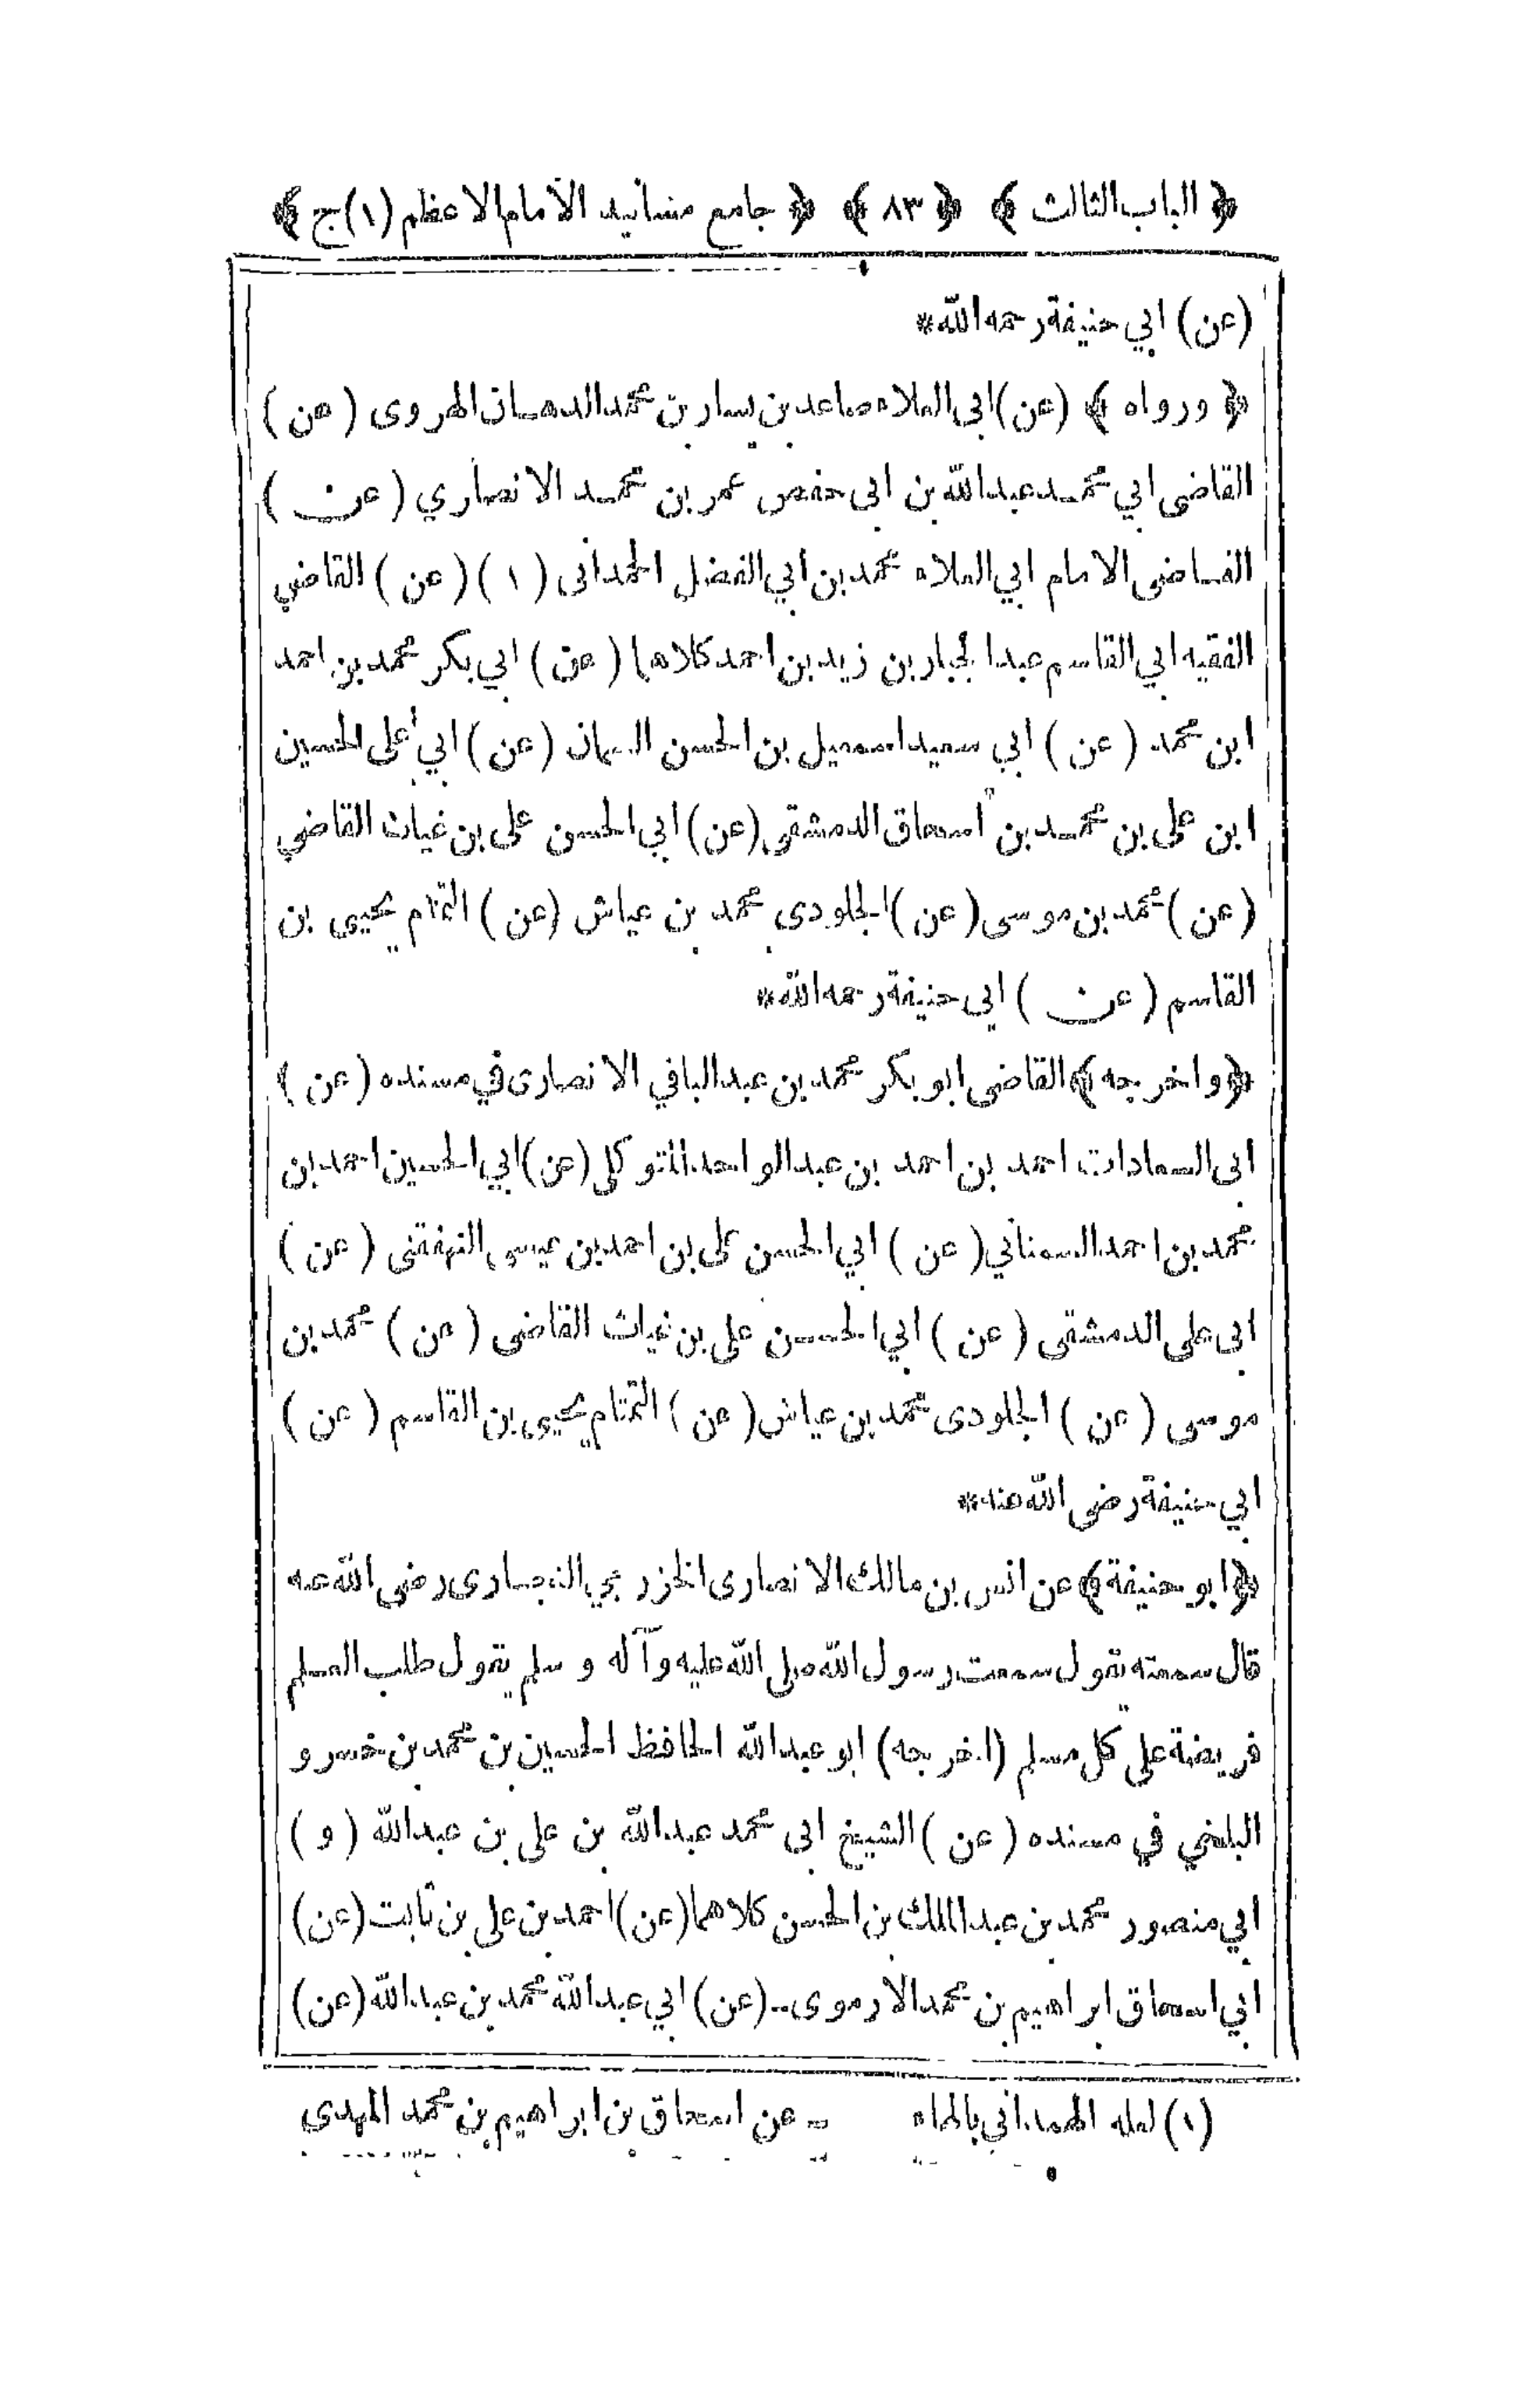 ﴿ الباب الثالث ﴾ ﴿ ٨٣ ﴾ ﴿ جامع مسانيد الامام الاعظم (١)ج ﴾
(عن) ابي حنيفة رحمه الله*
﴿ ورواه ﴾ (عن) ابى العلاء صاعد بن يسار بن محمد الدهان الهروى ( عن )
القاضى ابي محمد عبد الله بن ابى حفص عمر بن محمد الانصاري ( عن )
القاضى الامام ابي العلاء محمد بن ابي الفضل الحمدانى ( ١ ) ( عن ) القاضي
الفقيه ابي القاسم عبد الجبار بن زيد بن احمد كلاهما ( عن ) ابي بكر محمد بن احمد
ابن محمد ( عن ) ابي سعيد اسمعيل بن الحسن السمان ( عن ) ابي على الحسين
ابن على بن محمد بن اسحاق الدمشقى (عن) ابي الحسن على بن غياث القاضي
(عن) محمد بن موسى ( عن ) الجلودى محمد بن عياش (عن ) التمتام يحيى بن
القاسم ( عن ) ابى حنيفة رحمه الله*
﴿واخرجه﴾ القاضى ابو بكر محمد بن عبد الباقي الانصارى في مسنده ( عن )
ابى السعادات احمد بن احمد بن عبد الواحد المتوكلى (عن) ابي الحسين احمد بن
محمد بن احمد السمناني ( عن ) ابي الحسن على بن احمد بن عيسى النهفقنى ( عن )
ابى على الدمشقى ( عن ) ابي الحسن على بن غياث القاضى ( عن ) محمد بن
موسى ( عن ) الجلودى محمد بن عياش ( عن ) التمتام يحيى بن القاسم ( عن )
ابي حنيفة رضى الله عنه*
﴿ابو حنيفة﴾ عن انس بن مالك الانصارى الخزرجي النجارى رضى الله عنه
قال سمعته يقول سمعت رسول الله صلى الله عليه وآله وسلم يقول طلب العلم
فريضة على كل مسلم (اخرجه) ابو عبد الله الحافظ الحسين بن محمد بن خسرو
البلخي في مسنده ( عن ) الشيخ ابى محمد عبد الله بن على بن عبد الله ( و )
ابي منصور محمد بن عبد الملك بن الحسن كلاهما (عن) احمد بن على بن ثابت (عن)
ابي اسحاق ابراهيم بن محمد الارموى (عن) ابي عبد الله محمد بن عبد الله (عن)
(١) لعله الهمدانى بالهاء - عن اسحاق بن ابراهيم بن محمد المهدى